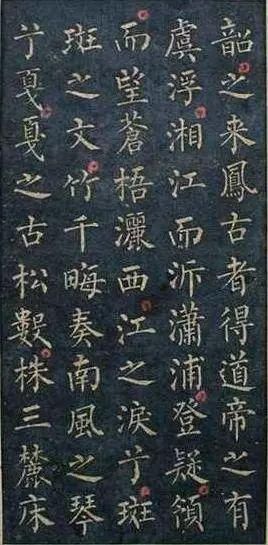 韶之来鳳古者得道帝之有
虞浮湘江而泝瀟浦登疑領
而望蒼梧灑西江之淚于斑
斑之文竹千晦奏南風之琴
于戛戛之古松數株三麓床